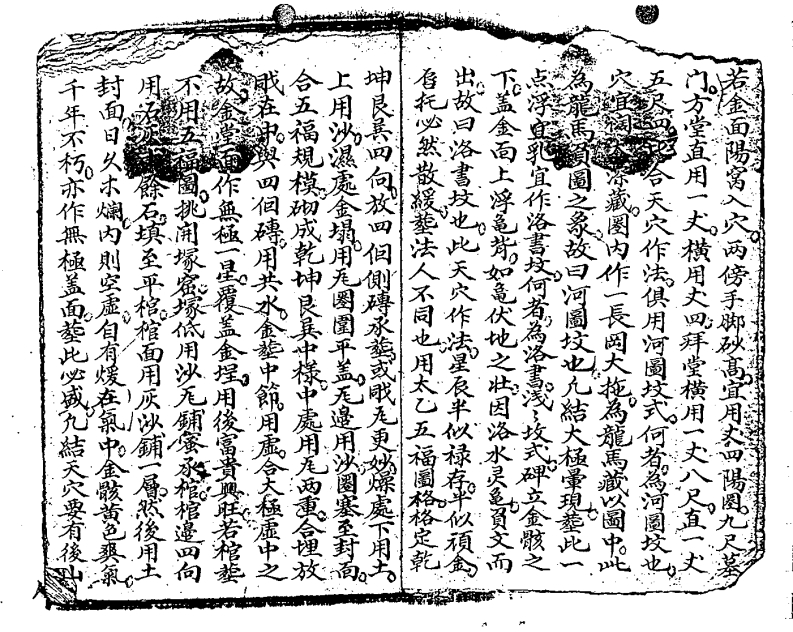 若金面陽窩入穴两傍手脚砂髙宜用丈四陽圏九尺墓
门方堂直用一丈橫用丈四拜堂橫用一丈八尺直一丈
五尺四此合天穴作法俱用河圖坟式何者為河圖坟也
穴宜濶深藏圏内作一長岡大拖為龍馬藏以圖中此
為龍馬負圖之象故曰河圖坟也凢結大極暈現塟此一
点浮直乳宜作洛書坟何者為洛書浅〻坟式碑立金骸之
下盖金面上浮龟背如龟伏地之壯因洛水灵龟負文而
出故曰洛書坟也此天穴作法星辰半似禄存半似頑金
唇托必然散緩塟法人不同也用太乙五福圖格格定乾
坤艮巽四向放四個側磚承塟或戝尾更妙燥處下用土
上用沙濕處金塌用尾圏圍平盖尾邉用沙圏塞至封面
合五福規模砌成乾坤艮巽中樣中處用尾两重合埋放
戝在中與四個磚用共水金塟中節用虚合大極虚中之
故金堂面作無極一星覆盖金埕用後富貴興旺若棺塟
不用五福圖挑開塚窑塚低用沙尾鋪蜜承棺棺邉四向
用石灰餘石填至平棺棺面用灰沙鋪一層然後用土
封面日久木爛内則空虚自有煖在氣中金骸黄色奭氣
千年不朽亦作無極盖面塟此必盛凢結天穴要有後山